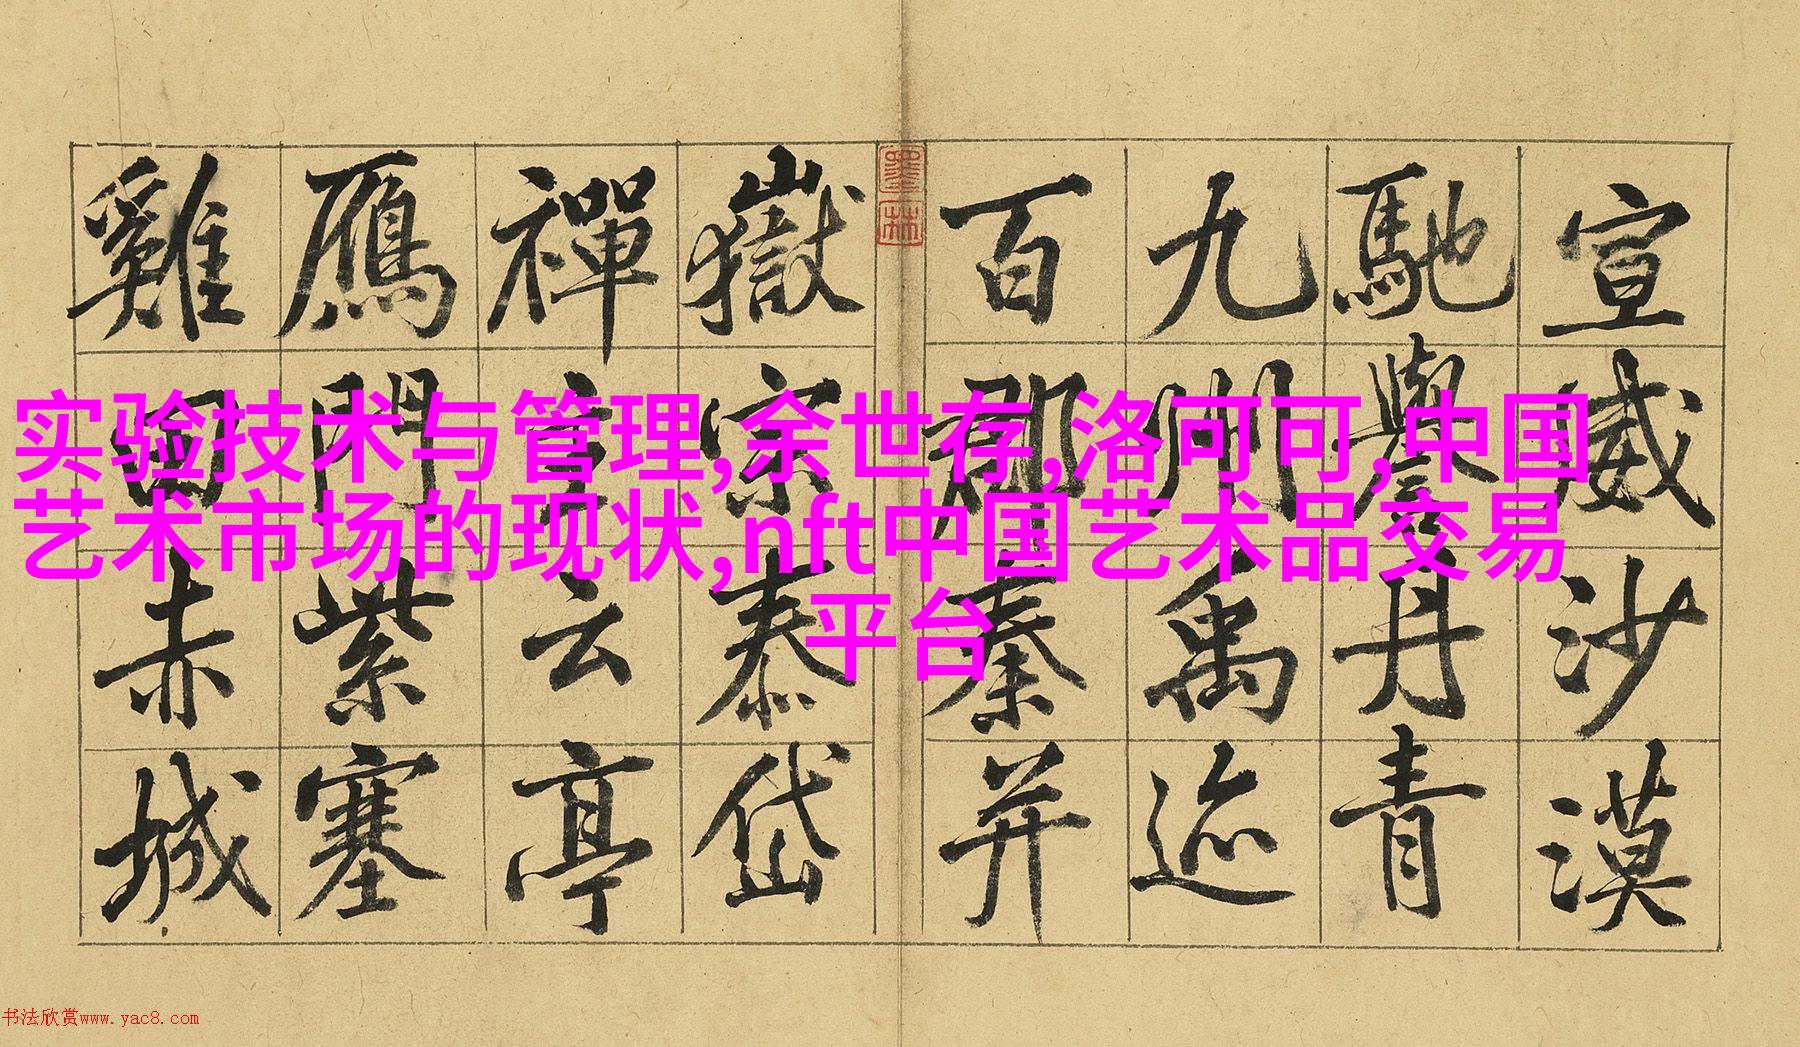 宣威沙漠
馳譽丹青
九州禹迹
百郡秦并
墨林
嶽宗泰岱
禪主云亭
鴈門紫塞
雞田赤城
实验技术与管理,余世存,洛可可,中国
艺术市场的现状,nft中国艺术品交易
平台
书法欣赏www.yac8.com